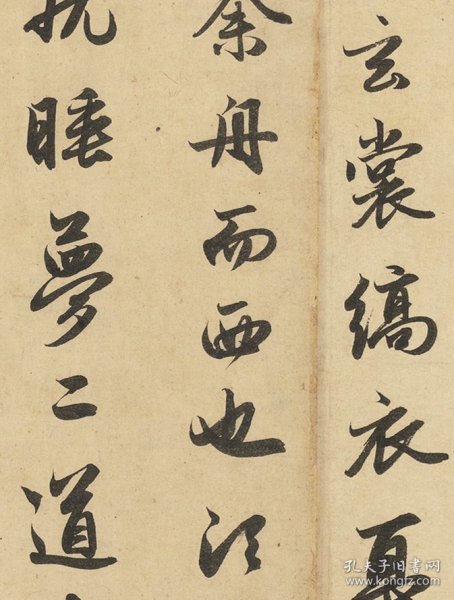 玄裳縞衣戛
余舟而西也須
就睡夢二道
孔夫子旧书网
www.kongfz.com